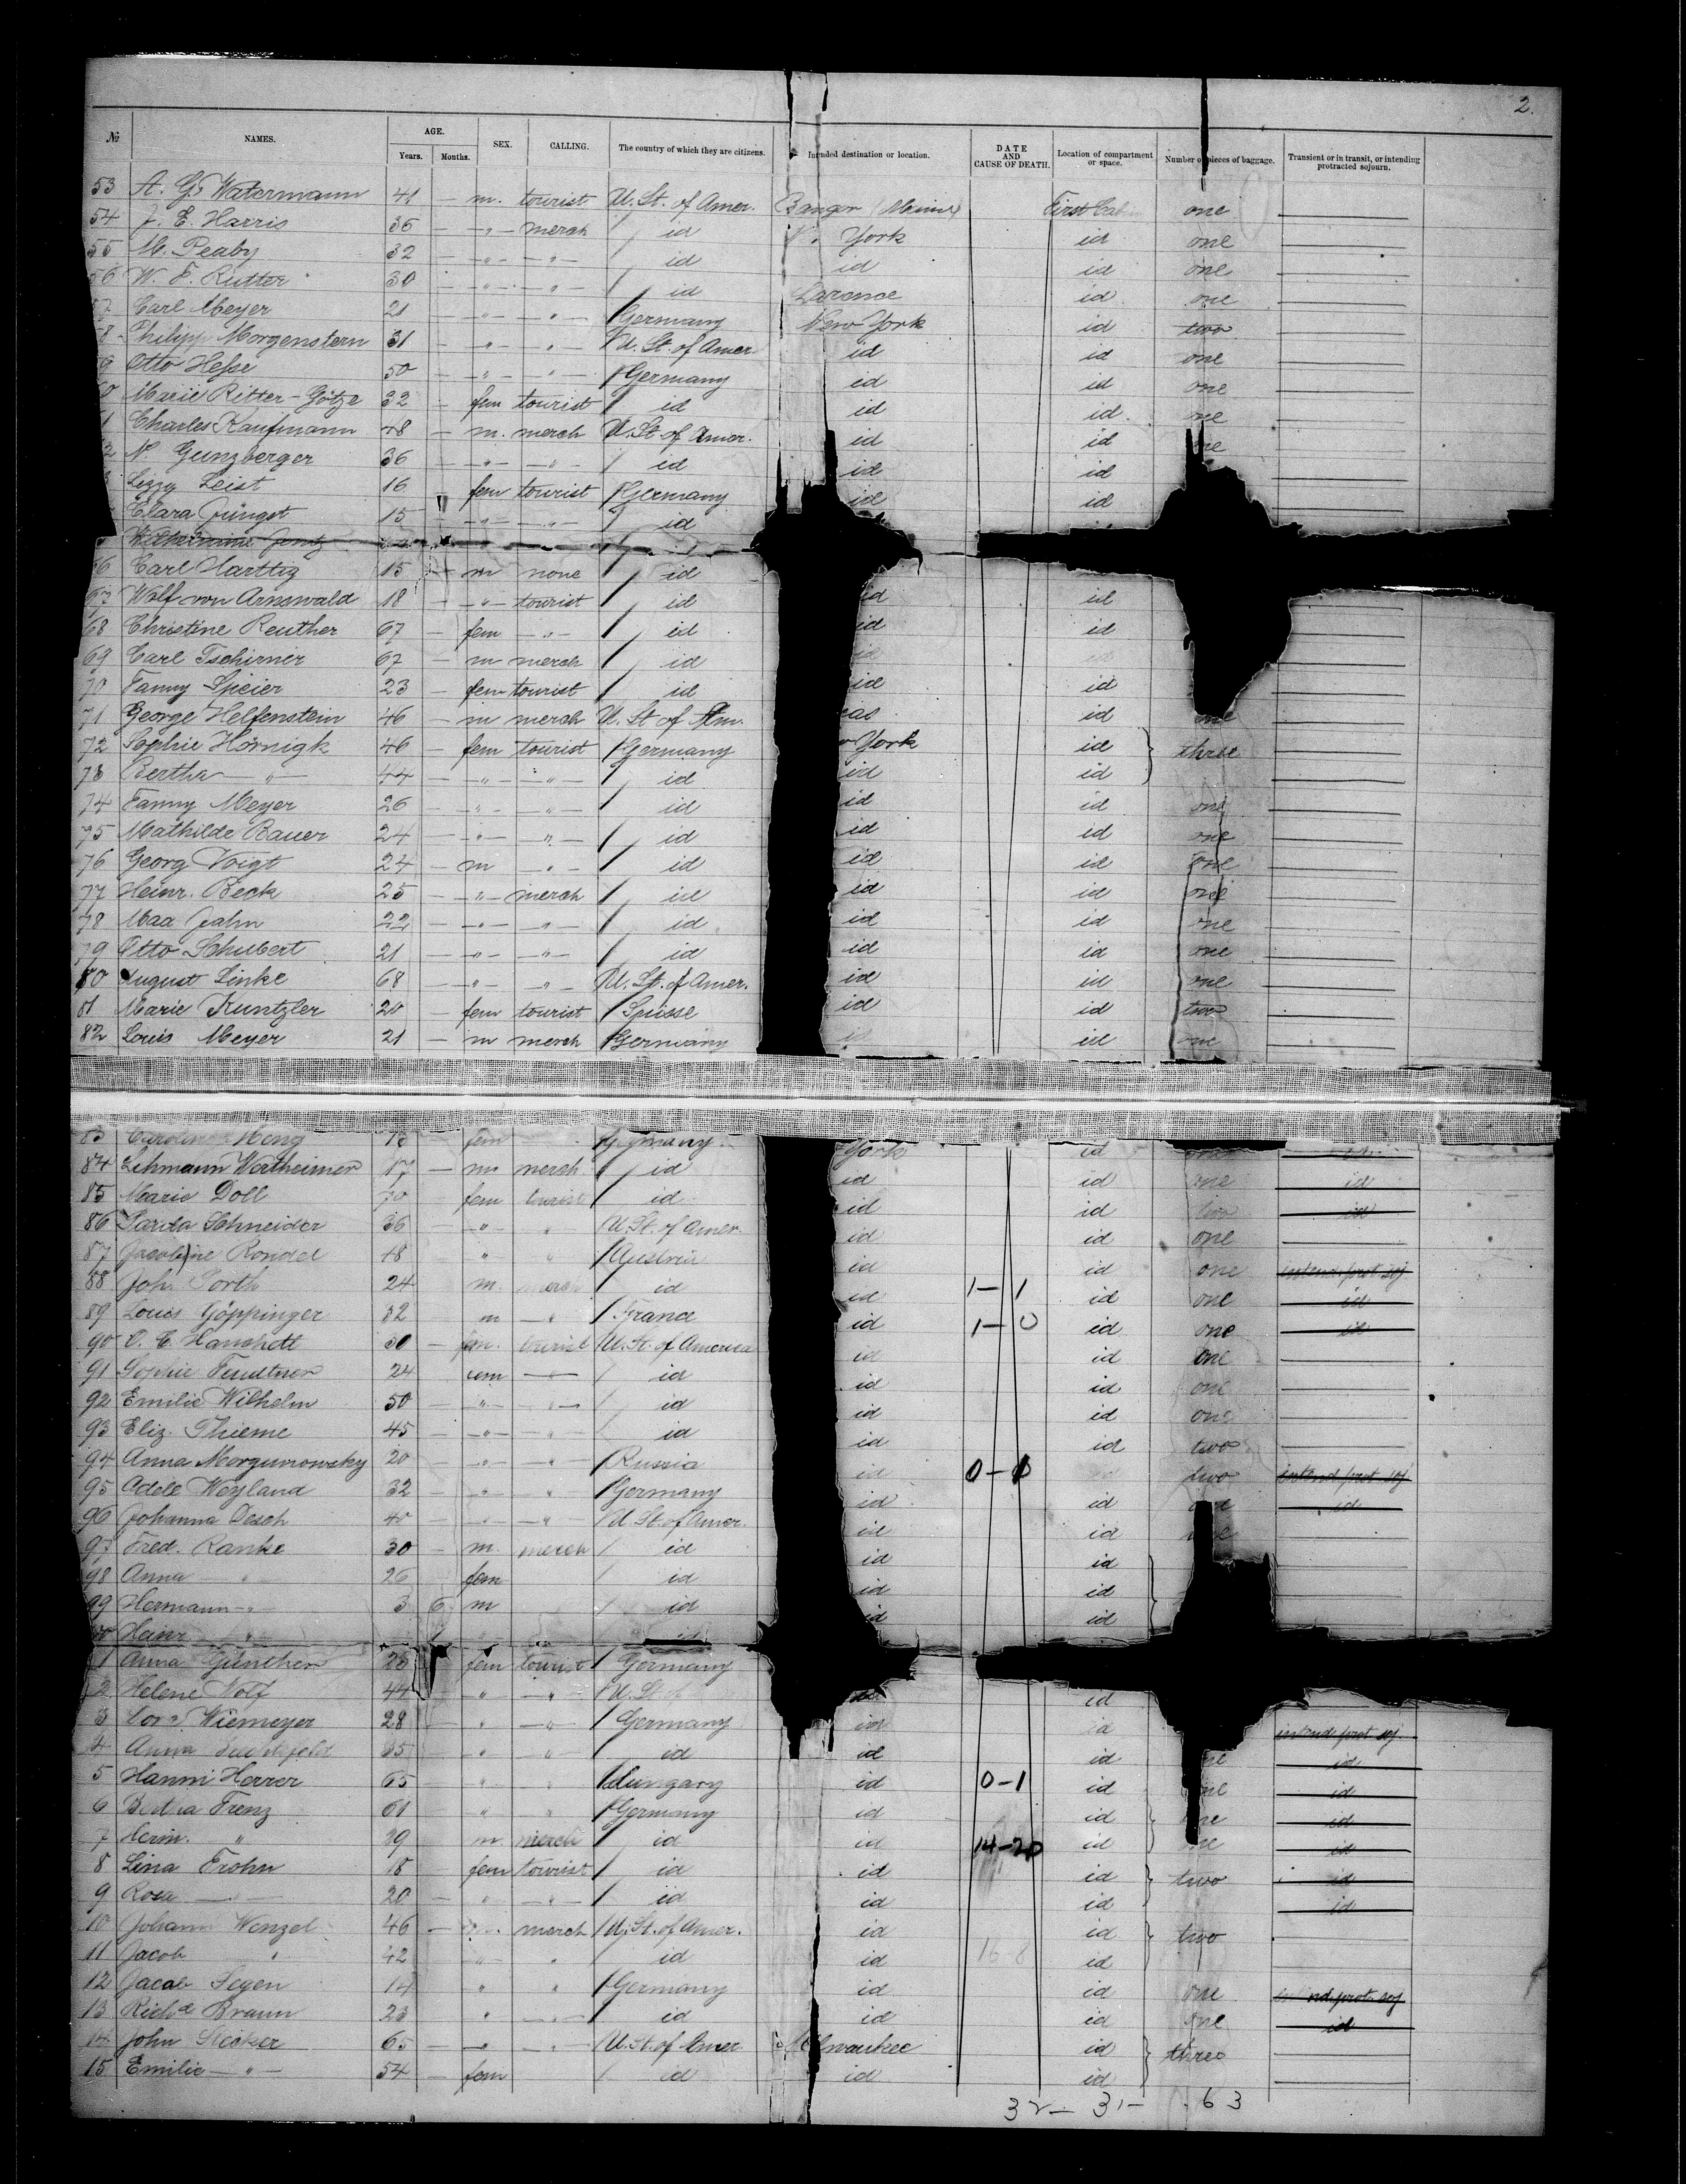 2.
№ NAMES. AGE. Years. Months. SEX. CALLING. The country of which they are citizens. Intended destination or location. DATE AND CAUSE OF DEATH. Location of compartment or space. Number of pieces of baggage. Transient or in transit, or intending protracted sojourn.
53 A. G. Watermann 41 — m. tourist U. St. of Amer. Bangor (Maine) First Cabin one
54 J. E. Harris 36 — " — merch id York id one
55 M. Peaby 32 — " — " — id id id one
56 W. F. Rutter 30 — " — " — id Larence id one
57 Carl Meyer 21 — " — " — Germany New York id two
58 Philipp Morgenstern 31 — " — " — U. St. of Amer. id id one
59 Otto Hesse 50 — " — " — Germany id id one
60 Marie Ritter-Götze 32 — fem tourist id id id one
61 Charles Kaufmann 48 — m. merch U. St. of Amer. id id one
62 N. Gunzberger 36 — " — " — id id id
Lizzy Leist 16 fem tourist Germany id id
Clara Jüngst 15 — " — " — id
Wilhelmine Jentz
66 Carl Harttig 15 — m none id
67 Wolf von Arnswald 18 — " — tourist id id id
68 Christine Reuther 67 — fem — " — id id id
69 Carl Tschirner 67 — m merch id id id
70 Fanny Speier 23 — fem tourist id id id
71 George Helfenstein 46 — m merch U. St of Am. id one
72 Sophie Hörnigk 46 — fem tourist Germany York id three
73 Bertha — " — 44 — " — " — id id id
74 Fanny Meyer 26 — " — " — id id id one
75 Mathilde Bauer 24 — " — " — id id id one
76 Georg Voigt 24 — m " — id id id one
77 Heinr. Beck 25 — " — merch id id id one
78 Max Jahn 22 — " — " — id id id one
79 Otto Schubert 21 — " — " — id id id one
80 August Linke 68 — " — " — U. St. of Amer. id id one
81 Marie Kuntzler 20 — fem tourist Suisse id id two
82 Louis Meyer 21 — m merch Germany id id one
83 Caroline Meng fem Germany York id
84 Lehmann Wertheimer 17 — m merch id id id one id
85 Marie Doll fem tourist id id id two id
86 Schneider 36 — " — " U. St. of Amer. id id one
87 Rondel 48 " " Austria id id one intend. prot. soj
88 Joh. 24 m. merch id id 1—1 id one id
89 Louis Göppinger 32 m — " France id 1—0 id one id
90 C. E. Hanchett 30 — tourist U. St. of America id id one
91 Sophie 24 — id id id one
92 Emilie Wilhelm 50 — " — " — id id id one
93 Eliz. Thieme 45 — " — " — id id id two
94 Anna 20 — " — " Russia id 0— two intend prot soj
95 Adele Weyland 32 " " Germany id id id
96 Johanna Desch 40 — " — " U. St. of Amer. id id
97 Fred. Ranke 30 — m. merch id id id
98 Anna — " 26 fem id id id
99 Hermann — " 3 6 m id id id
Heinr. — "
1 Anna Günther fem tourist Germany
2 Helene Wolf 44 " — " U. St. id
3 Wiemeyer 28 " — " Germany id id intend prot soj.
4 Anna " " id id id id
5 Hanni Herrer 65 " " Hungary id 0—1 id id
6 Frenz 61 " " Germany id id id
7 Herm. " m merch id id 14—20 id id
8 Lina Frohn 18 fem tourist id id id two id
9 Rosa — " — 20 " — " — id id id id
10 Johann Wenzel 46 — merch U. St. of Amer. id id two
11 Jacob " 42 " " id id id
12 Jacob Segen 14 " " Germany id id one prot soj
13 Richd. Braun 23 " — " — id id id one id
14 John 65 — " — " — U. St. of Amer Milwaukee id three
15 Emilie — " — 54 — fem id id id
32— 31— 63